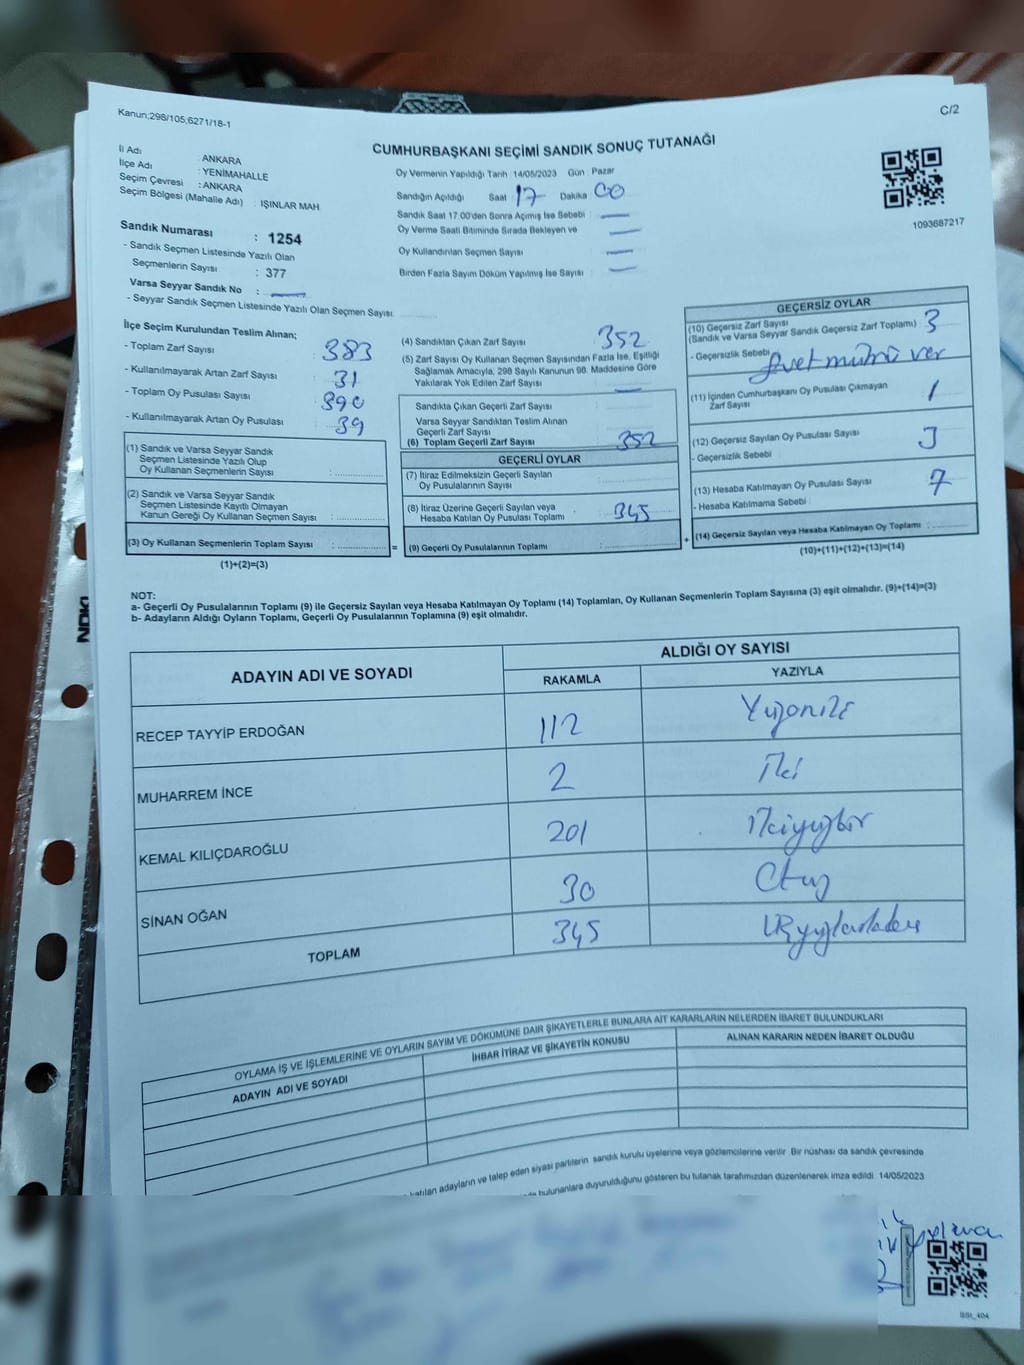 Kanun;298/105;6271/18-1
C/2
CUMHURBAŞKANI SEÇİMİ SANDIK SONUÇ TUTANAĞI
İl Adı : ANKARA
İlçe Adı : YENİMAHALLE
Seçim Çevresi : ANKARA
Seçim Bölgesi (Mahalle Adı) : IŞINLAR MAH
Sandık Numarası : 1254
- Sandık Seçmen Listesinde Yazılı Olan
Seçmenlerin Sayısı : 377
Varsa Seyyar Sandık No :
- Seyyar Sandık Seçmen Listesinde Yazılı Olan Seçmen Sayısı
Oy Vermenin Yapıldığı Tarih 14/05/2023 Gün Pazar
Sandığın Açıldığı Saat 17 Dakika 00
Sandık Saat 17.00'den Sonra Açımış İse Sebebi
Oy Verme Saati Bitiminde Sırada Bekleyen ve
Oy Kullandırılan Seçmen Sayısı
Birden Fazla Sayım Döküm Yapılmış İse Sayısı
1093687217
İlçe Seçim Kurulundan Teslim Alınan;
- Toplam Zarf Sayısı : 383
- Kullanılmayarak Artan Zarf Sayısı : 31
- Toplam Oy Pusulası Sayısı : 390
- Kullanılmayarak Artan Oy Pusulası : 39
(1) Sandık ve Varsa Seyyar Sandık
Seçmen Listesinde Yazılı Olup
Oy Kullanan Seçmenlerin Sayısı :
(2) Sandık ve Varsa Seyyar Sandık
Seçmen Listesinde Kayıtlı Olmayan
Kanun Gereği Oy Kullanan Seçmen Sayısı :
(3) Oy Kullanan Seçmenlerin Toplam Sayısı : =
(1)+(2)=(3)
(4) Sandıktan Çıkan Zarf Sayısı : 352
(5) Zarf Sayısı Oy Kullanan Seçmen Sayısından Fazla İse, Eşitliği
Sağlamak Amacıyla, 298 Sayılı Kanunun 98. Maddesine Göre
Yakılarak Yok Edilen Zarf Sayısı :
Sandıkta Çıkan Geçerli Zarf Sayısı :
Varsa Seyyar Sandıktan Teslim Alınan
Geçerli Zarf Sayısı :
(6) Toplam Geçerli Zarf Sayısı : 352
GEÇERLİ OYLAR
(7) İtiraz Edilmeksizin Geçerli Sayılan
Oy Pusulalarının Sayısı :
(8) İtiraz Üzerine Geçerli Sayılan veya
Hesaba Katılan Oy Pusulası Toplamı : 345
(9) Geçerli Oy Pusulalarının Toplamı : +
GEÇERSİZ OYLAR
(10) Geçersiz Zarf Sayısı
(Sandık ve Varsa Seyyar Sandık Geçersiz Zarf Toplamı) : 3
- Geçersizlik Sebebi : Evet mührü var
(11) İçinden Cumhurbaşkanı Oy Pusulası Çıkmayan
Zarf Sayısı : 1
(12) Geçersiz Sayılan Oy Pusulası Sayısı : 3
- Geçersizlik Sebebi :
(13) Hesaba Katılmayan Oy Pusulası Sayısı : 7
- Hesaba Katılmama Sebebi :
(14) Geçersiz Sayılan veya Hesaba Katılmayan Oy Toplamı :
(10)+(11)+(12)+(13)=(14)
NOT:
a- Geçerli Oy Pusulalarının Toplamı (9) ile Geçersiz Sayılan veya Hesaba Katılmayan Oy Toplamı (14) Toplamları, Oy Kullanan Seçmenlerin Toplam Sayısına (3) eşit olmalıdır. (9)+(14)=(3)
b- Adayların Aldığı Oyların Toplamı, Geçerli Oy Pusulalarının Toplamına (9) eşit olmalıdır.
ADAYIN ADI VE SOYADI
ALDIĞI OY SAYISI
RAKAMLA YAZIYLA
RECEP TAYYİP ERDOĞAN 112 Yüzoniki
MUHARREM İNCE 2 İki
KEMAL KILIÇDAROĞLU 201 ikiyüzbir
SİNAN OĞAN 30 Otuz
TOPLAM 345
OYLAMA İŞ VE İŞLEMLERİNE VE OYLARIN SAYIM VE DÖKÜMÜNE DAİR ŞİKAYETLERLE BUNLARA AİT KARARLARIN NELERDEN İBARET BULUNDUKLARI
ADAYIN ADI VE SOYADI İHBAR İTİRAZ VE ŞİKAYETİN KONUSU ALINAN KARARIN NEDEN İBARET OLDUĞU
katılan adayların ve talep eden siyasi partilerin sandık kurulu üyelerine veya gözlemcilerine verilir. Bir nüshası da sandık çevresinde
bulunanlara duyurulduğunu gösteren bu tutanak tarafımızdan düzenlenerek imza edildi. 14/05/2023